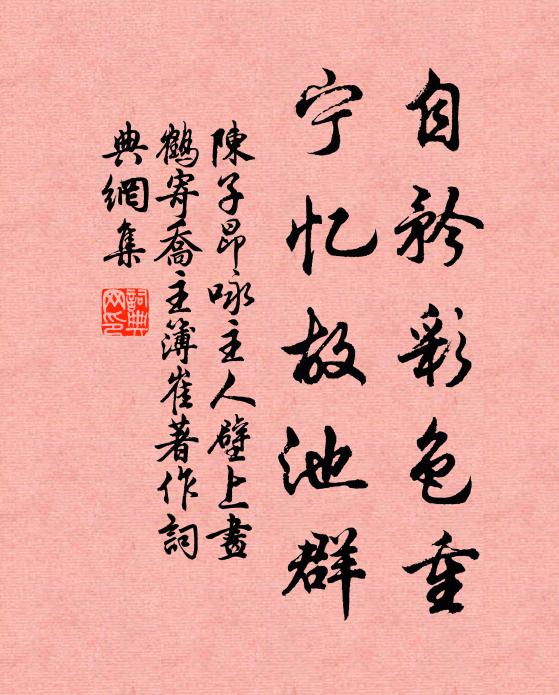 自矜彩色重
宁忆故池群
陳子昂咏主人壁上畫
鶴寄喬主簿崔著作詞
典網集
詞典
网印